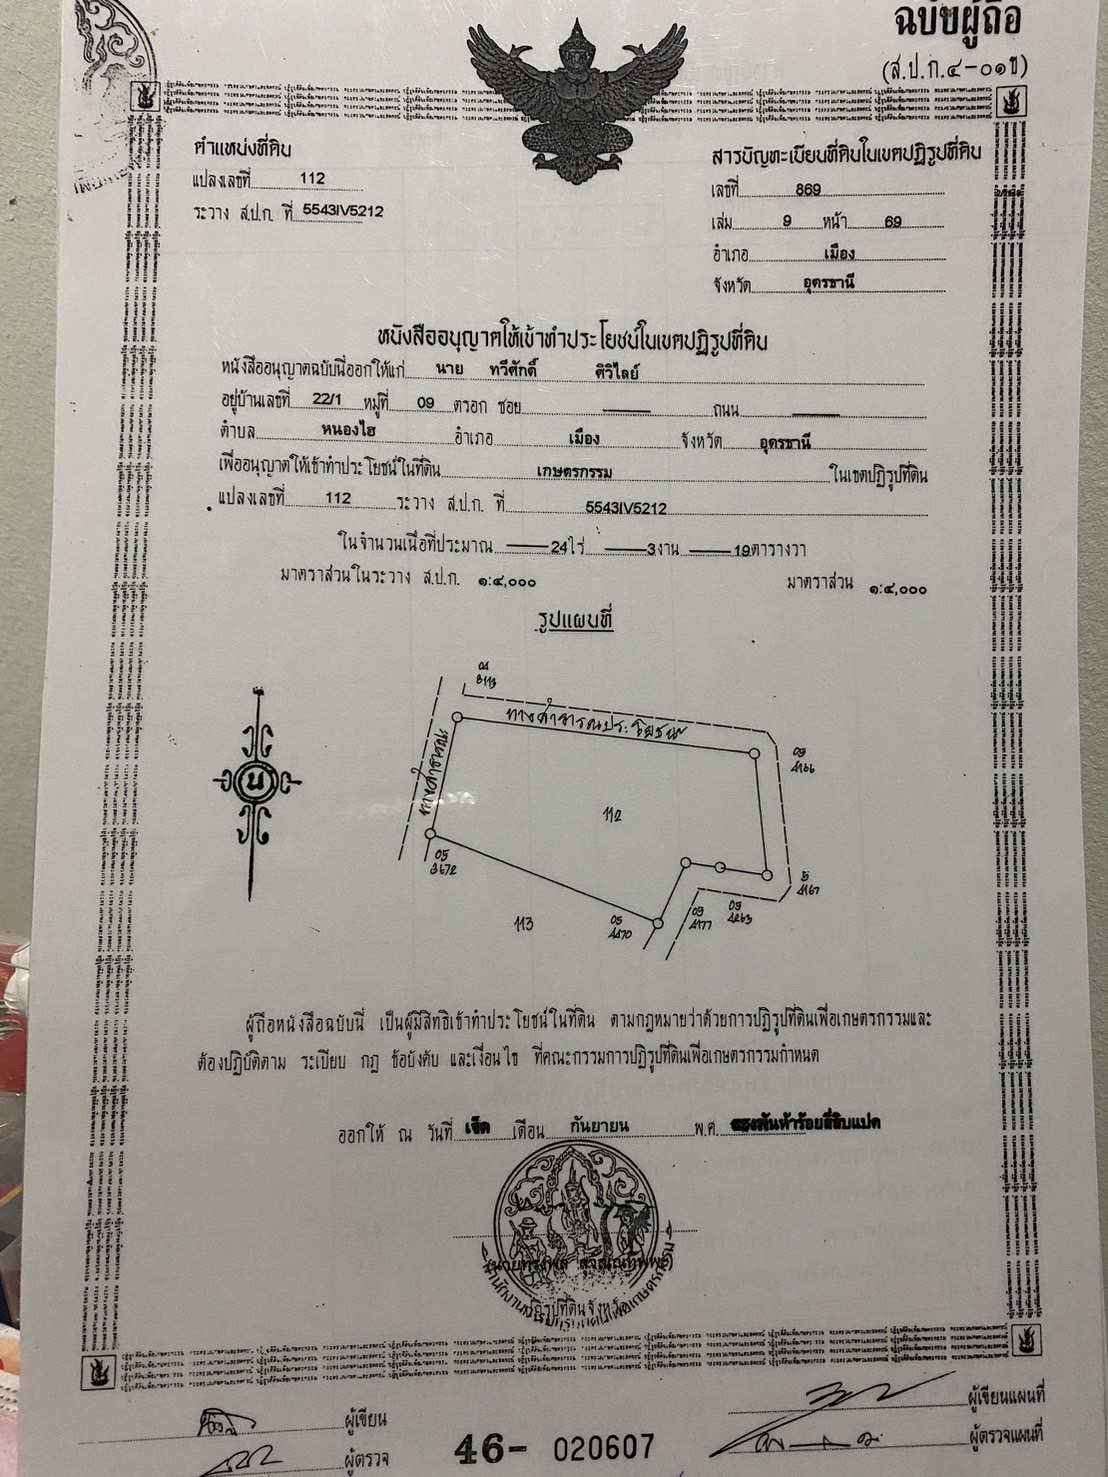 ฉบับผู้ถือ
(ส.ป.ก.๔-๐๑ข)
ตำแหน่งที่ดิน
แปลงเลขที่ 112
ระวาง ส.ป.ก. ที่ 5543IV5212
สารบัญทะเบียนที่ดินในเขตปฏิรูปที่ดิน
เลขที่ 869
เล่ม 9 หน้า 69
อำเภอ เมือง
จังหวัด อุดรธานี
หนังสืออนุญาตให้เข้าทำประโยชน์ในเขตปฏิรูปที่ดิน
หนังสืออนุญาตฉบับนี้ออกให้แก่ นาย ทวีศักดิ์ ศิวิไลย์
อยู่บ้านเลขที่ 22/1 หมู่ที่ 09 ตรอก ซอย ถนน
ตำบล หนองไฮ อำเภอ เมือง จังหวัด อุดรธานี
เพื่ออนุญาตให้เข้าทำประโยชน์ในที่ดิน เกษตรกรรม ในเขตปฏิรูปที่ดิน
แปลงเลขที่ 112 ระวาง ส.ป.ก. ที่ 5543IV5212
ในจำนวนเนื้อที่ประมาณ 24 ไร่ 3 งาน 19 ตารางวา
มาตราส่วนในระวาง ส.ป.ก. ๑:๔,๐๐๐ มาตราส่วน ๑:๔,๐๐๐
รูปแผนที่
ทางสาธารณประโยชน์
ทางสาธารณะ
น
112
05
3672
113
05
4470
ผู้ถือหนังสือฉบับนี้ เป็นผู้มีสิทธิเข้าทำประโยชน์ในที่ดิน ตามกฎหมายว่าด้วยการปฏิรูปที่ดินเพื่อเกษตรกรรมและ
ต้องปฏิบัติตาม ระเบียบ กฎ ข้อบังคับ และเงื่อนไข ที่คณะกรรมการปฏิรูปที่ดินเพื่อเกษตรกรรมกำหนด
ออกให้ ณ วันที่ เจ็ด เดือน กันยายน พ.ศ. สองพันห้าร้อยสี่สิบแปด
ผู้เขียน
ผู้ตรวจ
46- 020607
ผู้เขียนแผนที่
ผู้ตรวจแผนที่